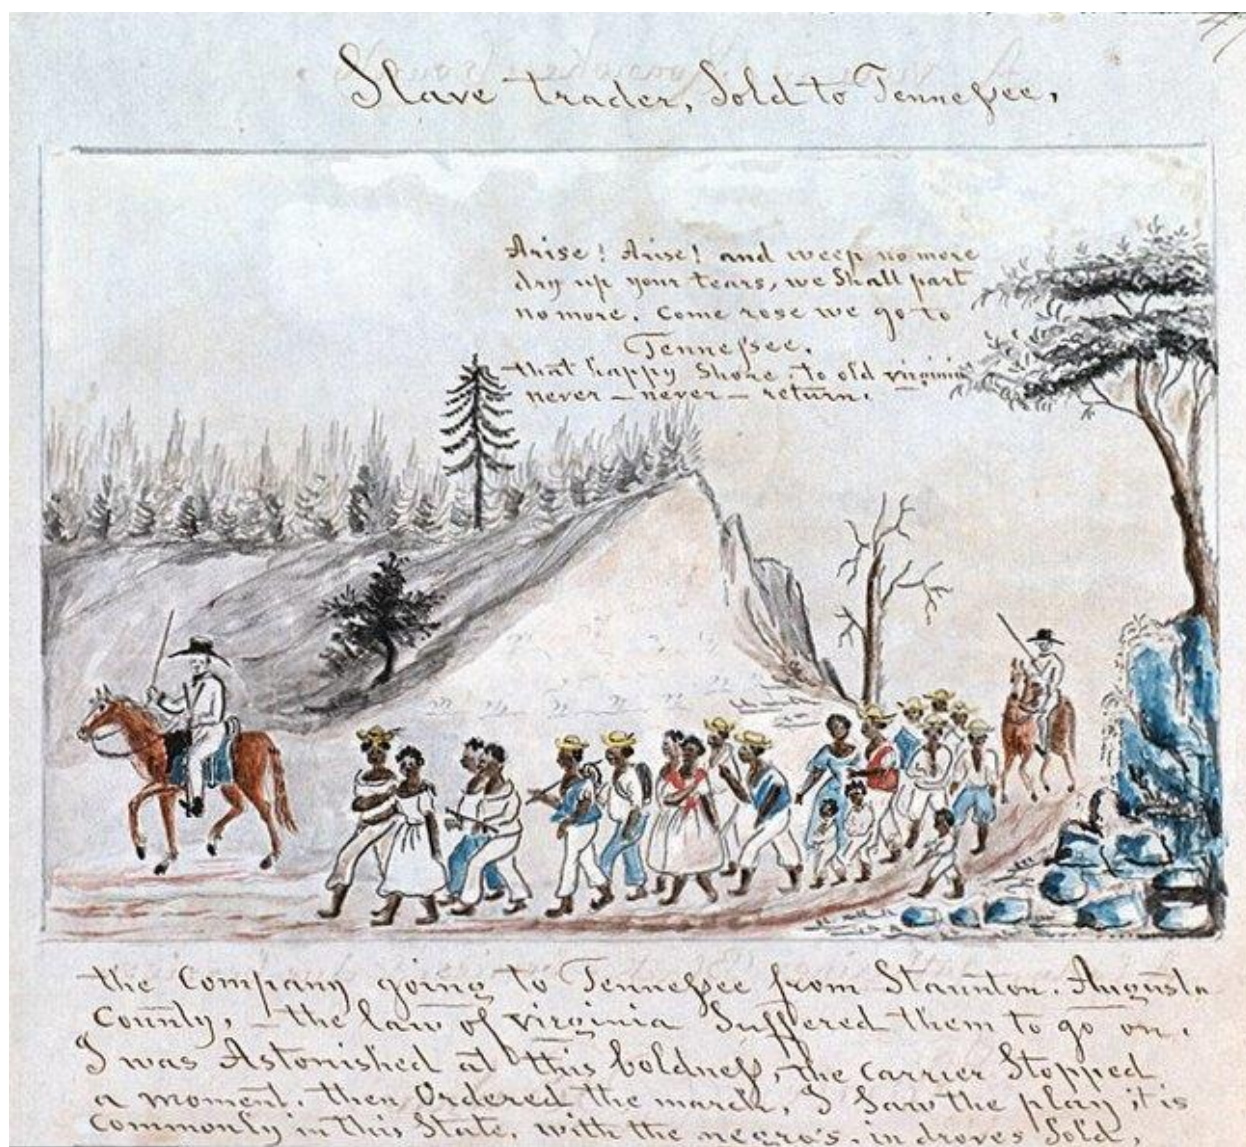 Slave trader, Sold to Tennessee,
Arise! Arise! and weep no more
dry up your tears, we Shall part
no more. Come rose we go to
Tennessee.
that happy Shore. to old virginia
never – never – return.
the Company going to Tennessee from Staunton. Augusta
County, – the law of virginia Suffered them to go on.
I was Astonished at this boldness, the carrier Stopped
a moment. then Ordered the march, I Saw the play it is
Commonly in this State, with the negro's in droves Sold